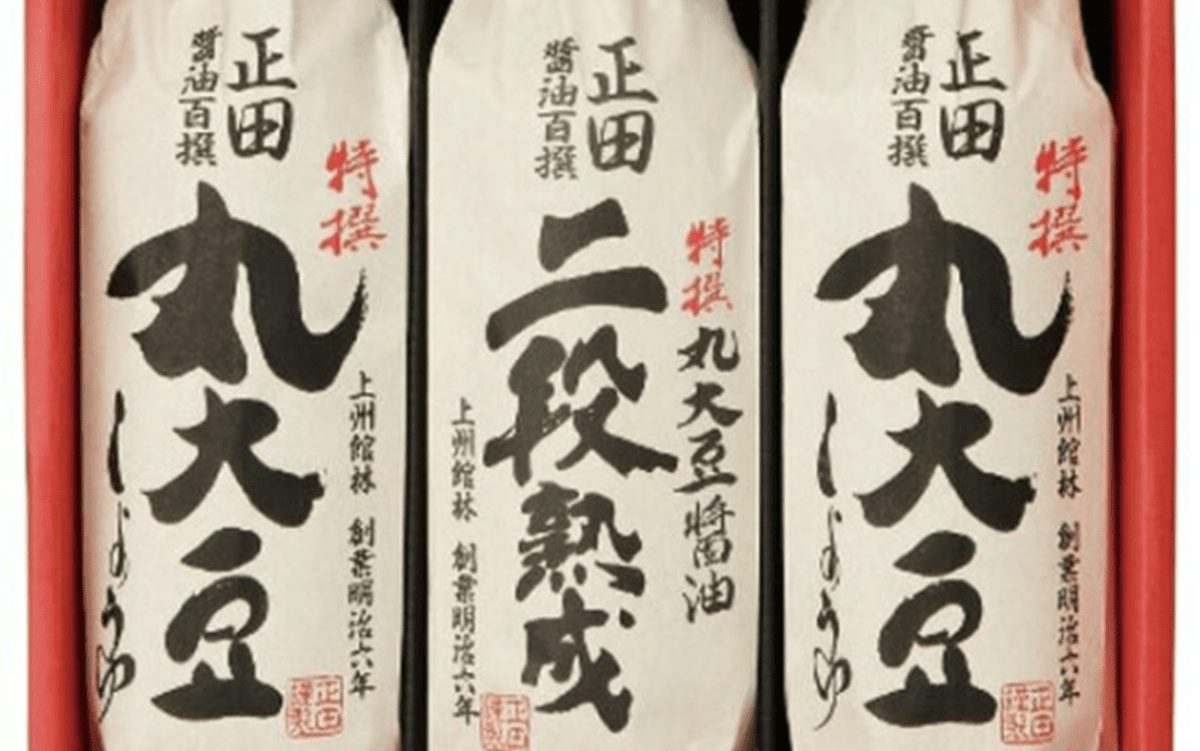 特撰
正田
醤油百撰
上州館林 創業明治六年
丸大豆
しょうゆ
正田
謹製
正田
醤油百撰
特撰
丸大豆醤油
二段熟成
上州館林 創業明治六年
正田
謹製
特撰
正田
醤油百撰
上州館林 創業明治六年
丸大豆
しょうゆ
正田
謹製